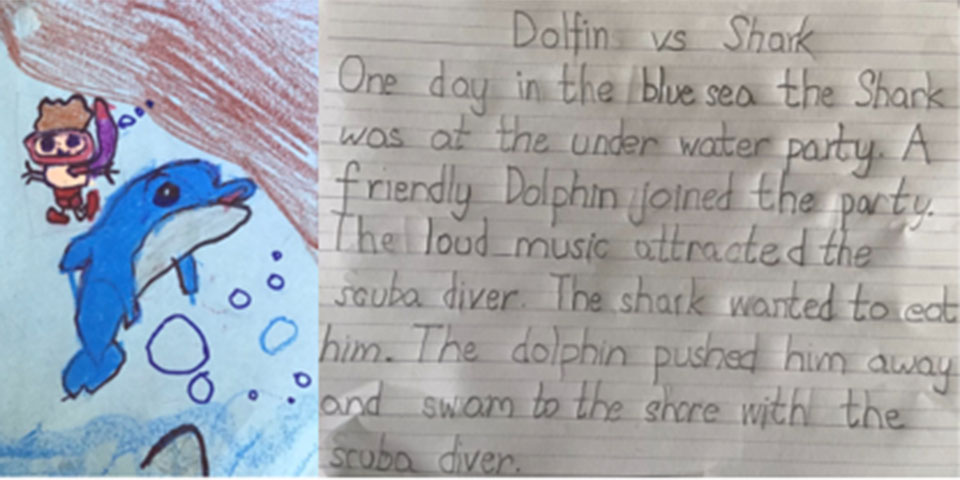 Dolfin vs Shark
One day in the blue sea the Shark
was at the under water party. A
friendly Dolphin joined the party.
The loud music attracted the
scuba diver. The shark wanted to eat
him. The dolphin pushed him away
and swam to the shore with the
scuba diver.